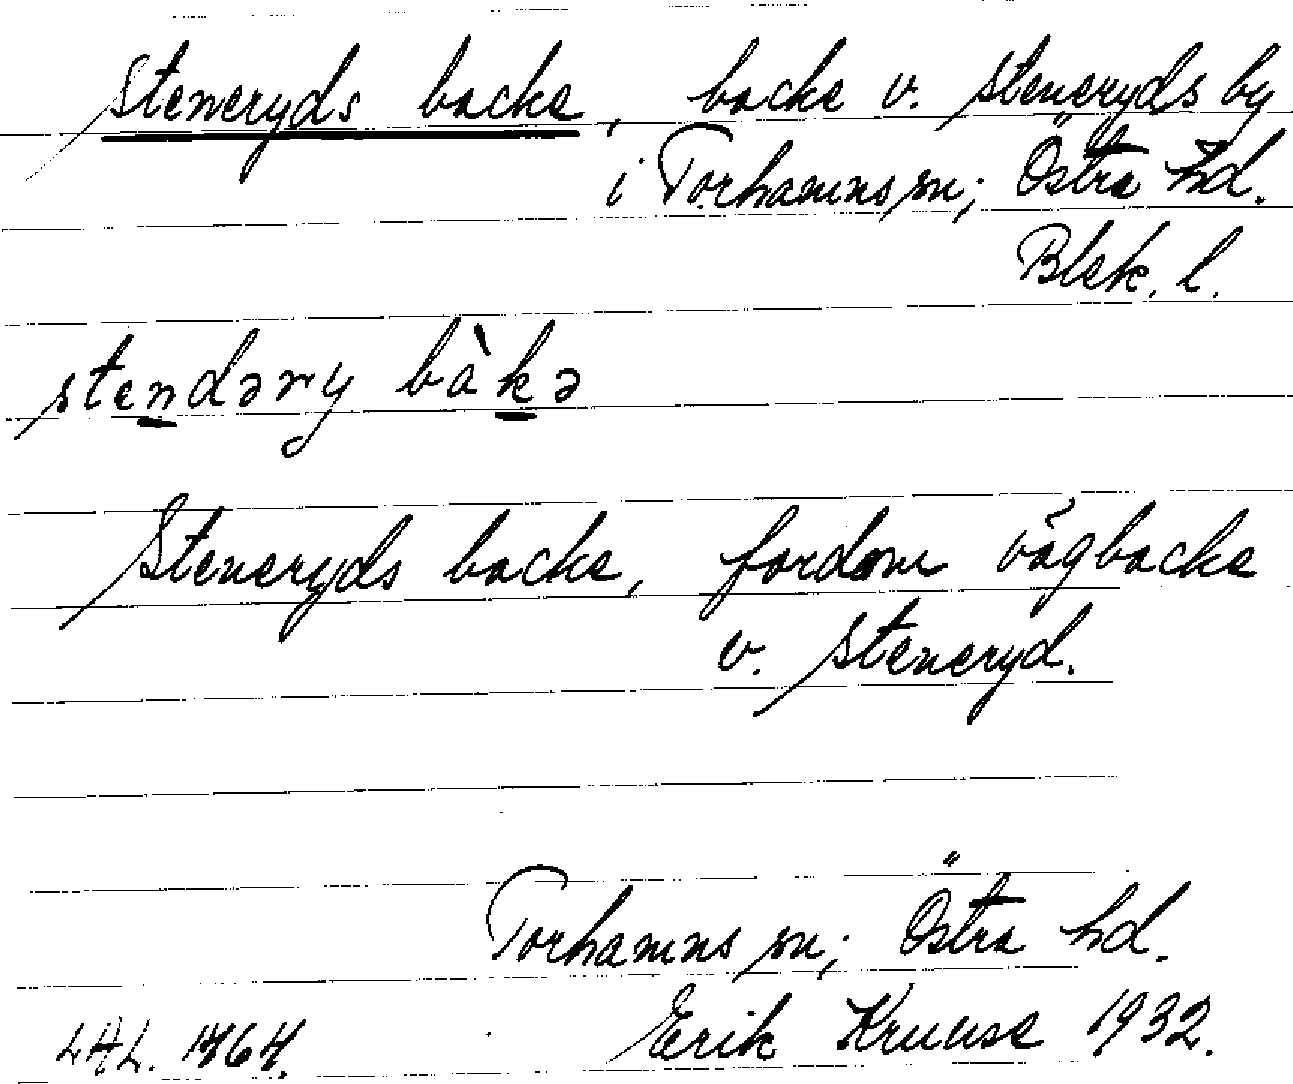 Steneryds backe, backe v. Steneryds by
i Torhamns sn; Östra hd.
Blek. l.
stendəry bàkə
Steneryds backe, fordom vägbacke
v. Steneryd.
Torhamns sn; Östra hd.
Erik Kruuse 1932.
LAL.